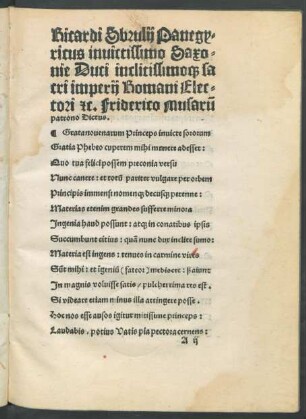 Ricardi Sbrulij Panegy⸗
ricus inuictissimo Saxo⸗
nie Duci inclitissimoqꝫ sa
cri imperij Romani Elec⸗
tori ⁊c. Friderico Musarū
patrono Dictus.
¶ Grata nouenarum Princeps inuicte sororum
Gratia Phebeo cuperem mihi munere adesset:
Quo tua felici possem preconia versu
Nunc canere: et toto pariter vulgare per orbem
Principis immensi nomenqꝫ decusqꝫ perenne:
Materias etenim grandes sufferre minora
Ingenia haud possunt: atqꝫ in conatibus ipsis
Succumbunt citius: quā nunc dux inclite sumo:
Materia est ingens: tenues in carmine vires
Sūt mihi: et īgeniū (fateor) mediocre:
In magnis voluisse satis / pulcherrima res est.
Si videare etiam minus illa attingere posse.
Hoc nos esse ausos igitur mitissime princeps:
Laudabis, potius Vatis pia pectora cernens:
A ij